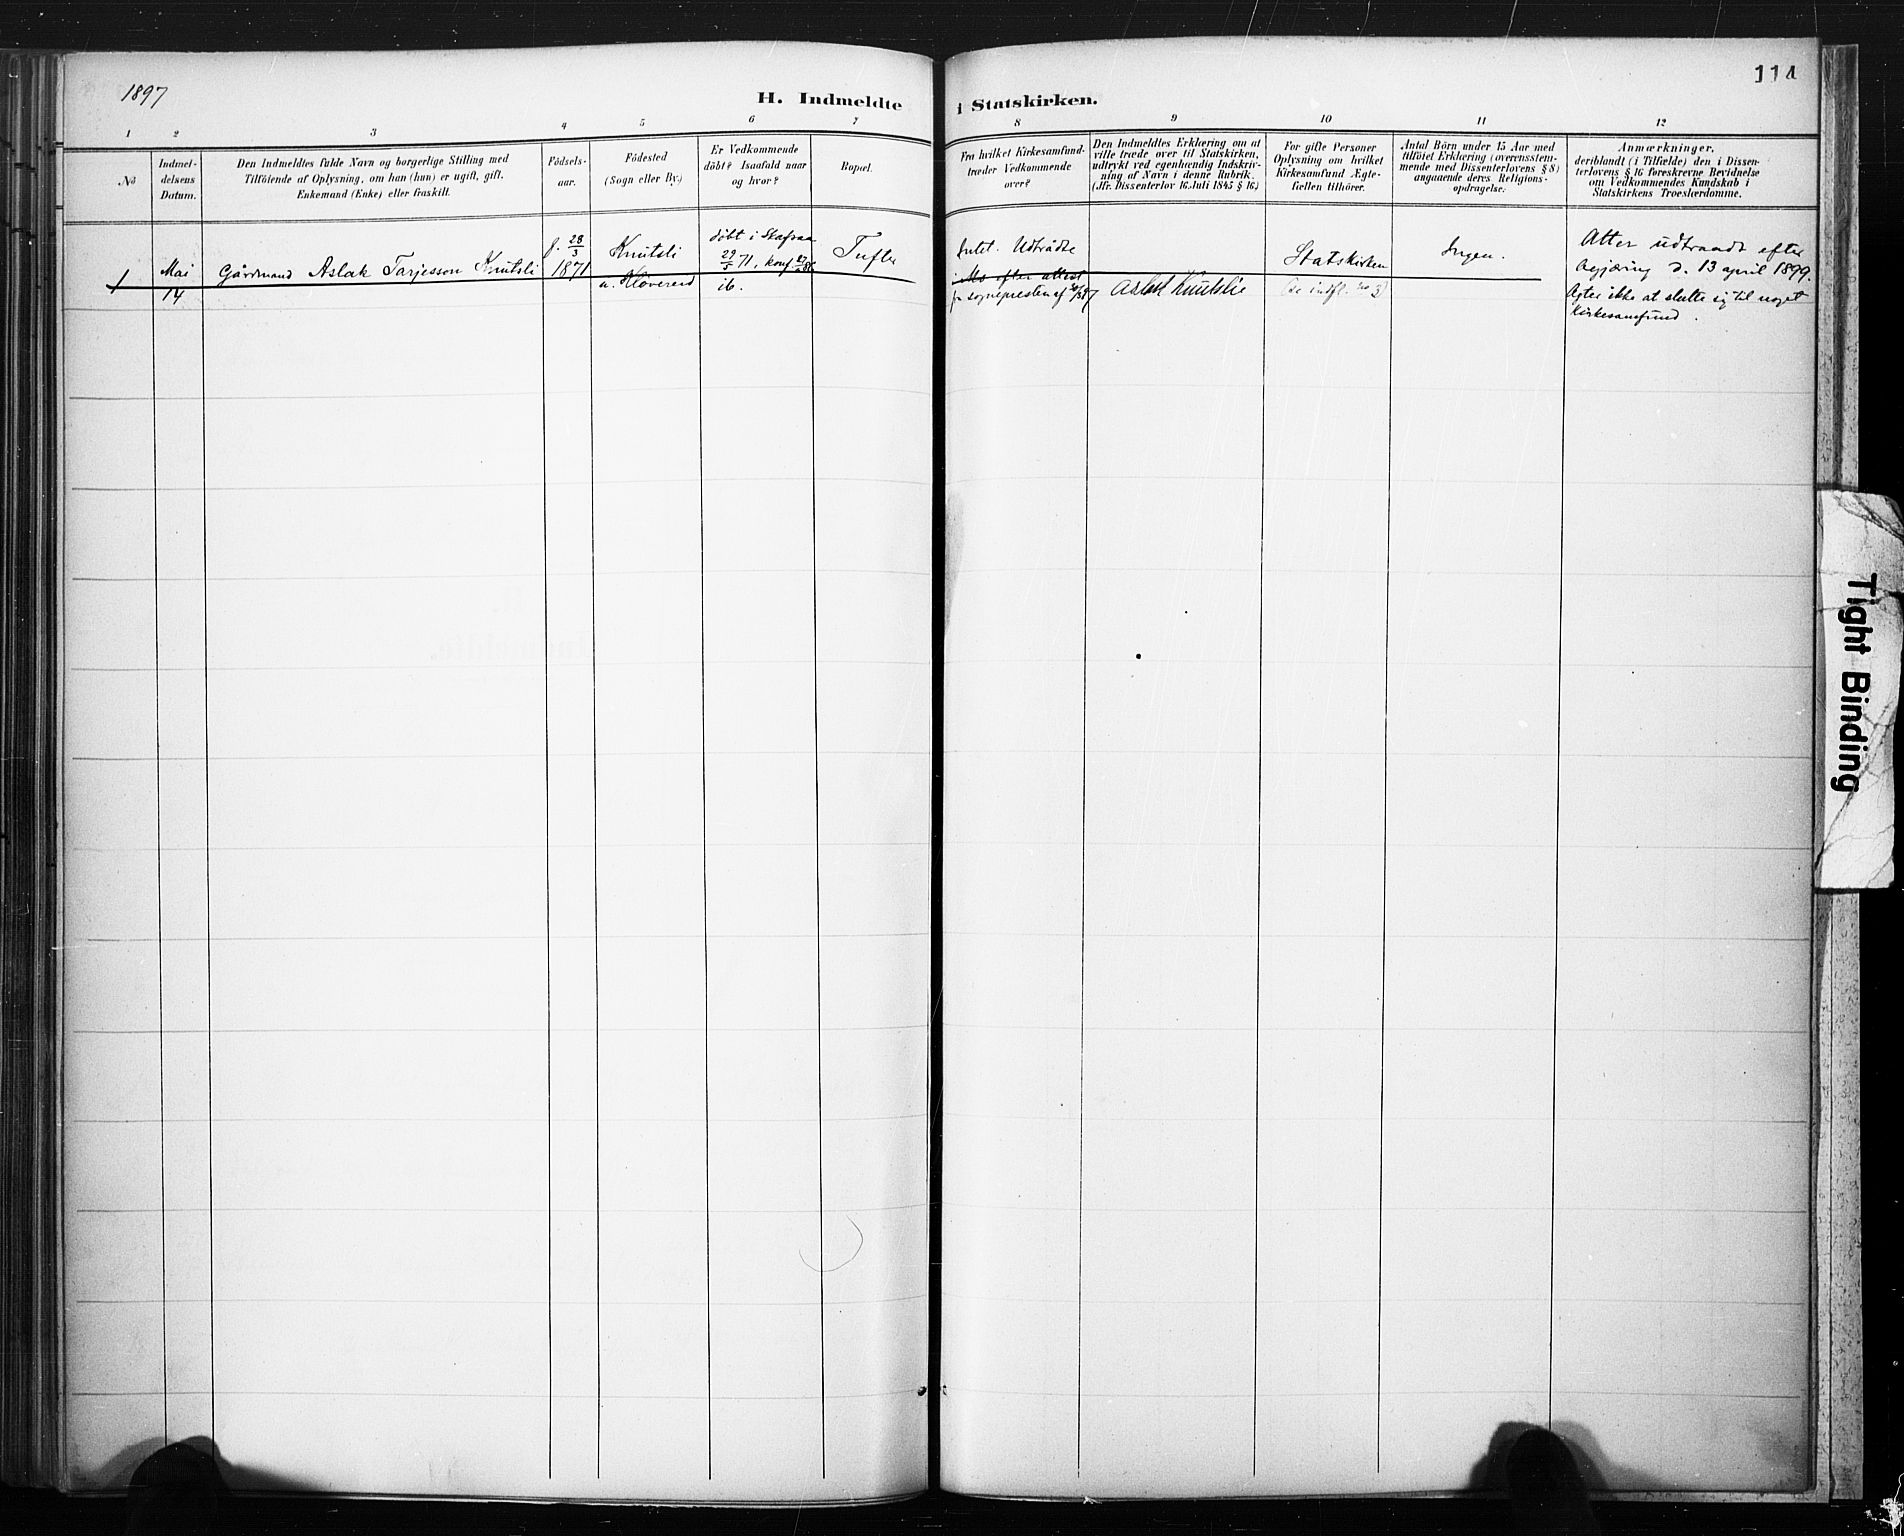 1897
114
H. Indmeldte i Statskirken.
1 2 3 4 5 6 7 8 9 10 11 12
No
Indmel-
delsens
Datum.
Den Indmeldtes fulde Navn og borgerlige Stilling med
Tilföiende af Oplysning, om han (hun) er ugift, gift,
Enkemand (Enke) eller fraskilt.
Födsels-
aar.
Födested
(Sogn eller By.)
Er Vedkommende
döbt? Isaafald naar
og hvor?
Bopæl.
Fra hvilket Kirkesamfund-
træder Vedkommende
over?
Den Indmeldtes Erklæring om at
ville træde over til Statskirken,
udtrykt ved egenhændig Indskriv-
ning af Navn i denne Rubrik.
(Jfr. Dissenterlov 16. Juli 1845 § 16.)
For gifte Personer
Oplysning om hvilket
Kirkesamfund Ægte-
fællen tilhörer.
Antal Börn under 15 Aar med
tilföiet Erklæring (overensstem-
mende med Dissenterlovens § 8)
angaaende deres Religions-
opdragelse.
Anmærkninger,
deriblandt (i Tilfælde) den i Dissen-
terlovens § 16 foreskrevne Bevidnelse
om Vedkommendes Kundskab i
Statskirkens Troeslærdomme.
1
Mai
14
Gårdmand Aslak Tarjesson Knutsli
f. 28/3
1871
Knutsli
u. Kloverud
döbt i Skafsaa
29/5 71, konf.
ib.
Tufte
Intet. Udtrådte
i Mo efter attest
fr sognepresten af
Aslak Knutslie
Statskirken
(se indfl. no 3)
Ingen.
Atter udtraadt efter
begjæring d. 13 april 1899.
Agter ikke at slutte sig til noget
kirkesamfund.
Tight Binding